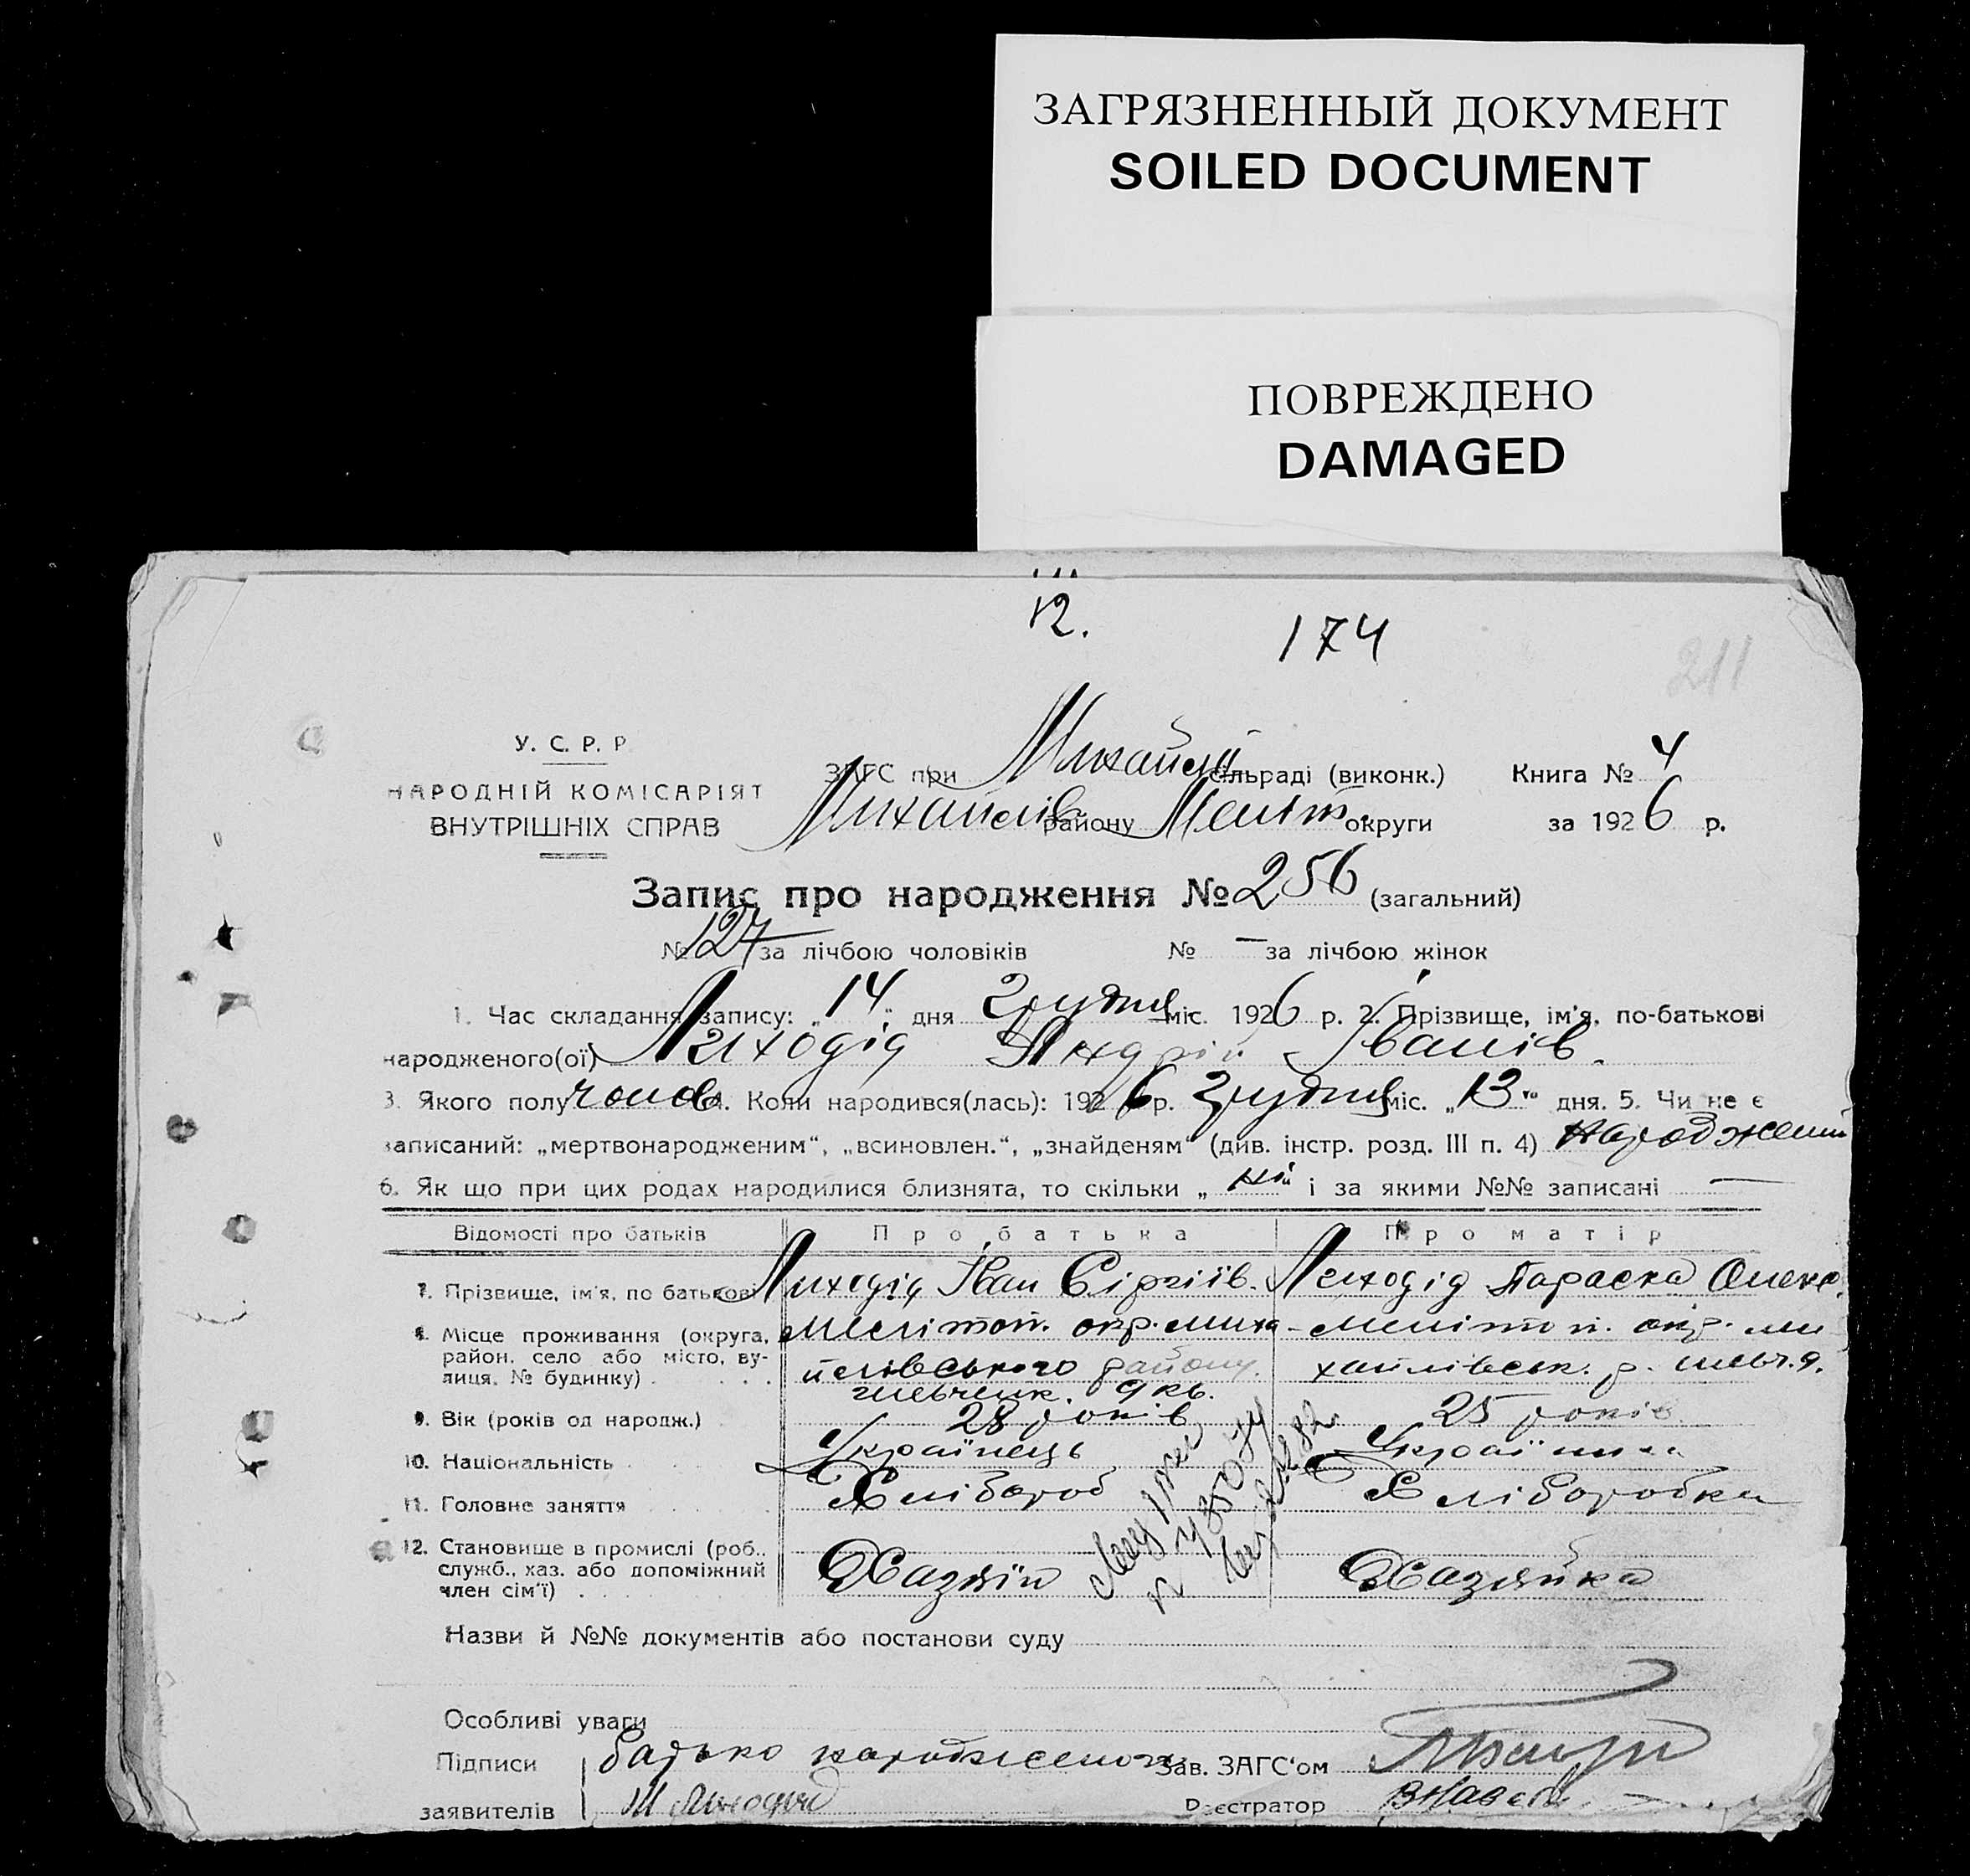 ЗАГРЯЗНЕННЫЙ ДОКУМЕНТ
SOILED DOCUMENT
ПОВРЕЖДЕНО
DAMAGED
12.
174
211
У. С. Р. Р.
НАРОДНІЙ КОМІСАРІЯТ
ВНУТРІШНІХ СПРАВ
ЗАГС при Михайлів сільраді (виконк.) Книга № 4
Михайлів району Меліт. округи за 1926 р.
Запис про народження № 256 (загальний)
№ 127 за лічбою чоловіків № — за лічбою жінок
1. Час складання запису: „14„ дня Грудня міс. 1926 р. 2. Прізвище, ім'я, по-батькові
народженого(ої) Лиходід Андрій Іванів.
3. Якого полу чолов. 4. Коли народився(лась): 1926 р. Грудня міс. „13" дня. 5. Чи не є
записаний: „мертвонародженим“, „всиновлен.“, „знайденям“ (див. інстр. розд. III п. 4) народжений
6. Як що при цих родах народилися близнята, то скільки „ ні " і за якими №№ записані —
Відомості про батьків Про батька Про матір
7. Прізвище, ім'я, по батькові Лиходід Іван Сіргіїв. Лиходід Параска Олекс.
8. Місце проживання (округа, Мелітоп. окр. Миха- Меліт оп. окр. Ми
район, село або місто, ву- йлівського району. хайлівськ. р.
лиця, № будинку) 9 кв.
9. Вік (років од народж.) 28 років 25 років
10. Національність Українець Українка
11. Головне заняття Хлібороб Хліборобка
12. Становище в промислі (роб.,
служб., хаз. або допоміжний Хазяїн Хазяйка
член сім'ї)
Назви й №№ документів або постанови суду
Особливі уваги
Підписи батько народженого Зав. ЗАГС'ом
заявителів Лиходід Реєстратор